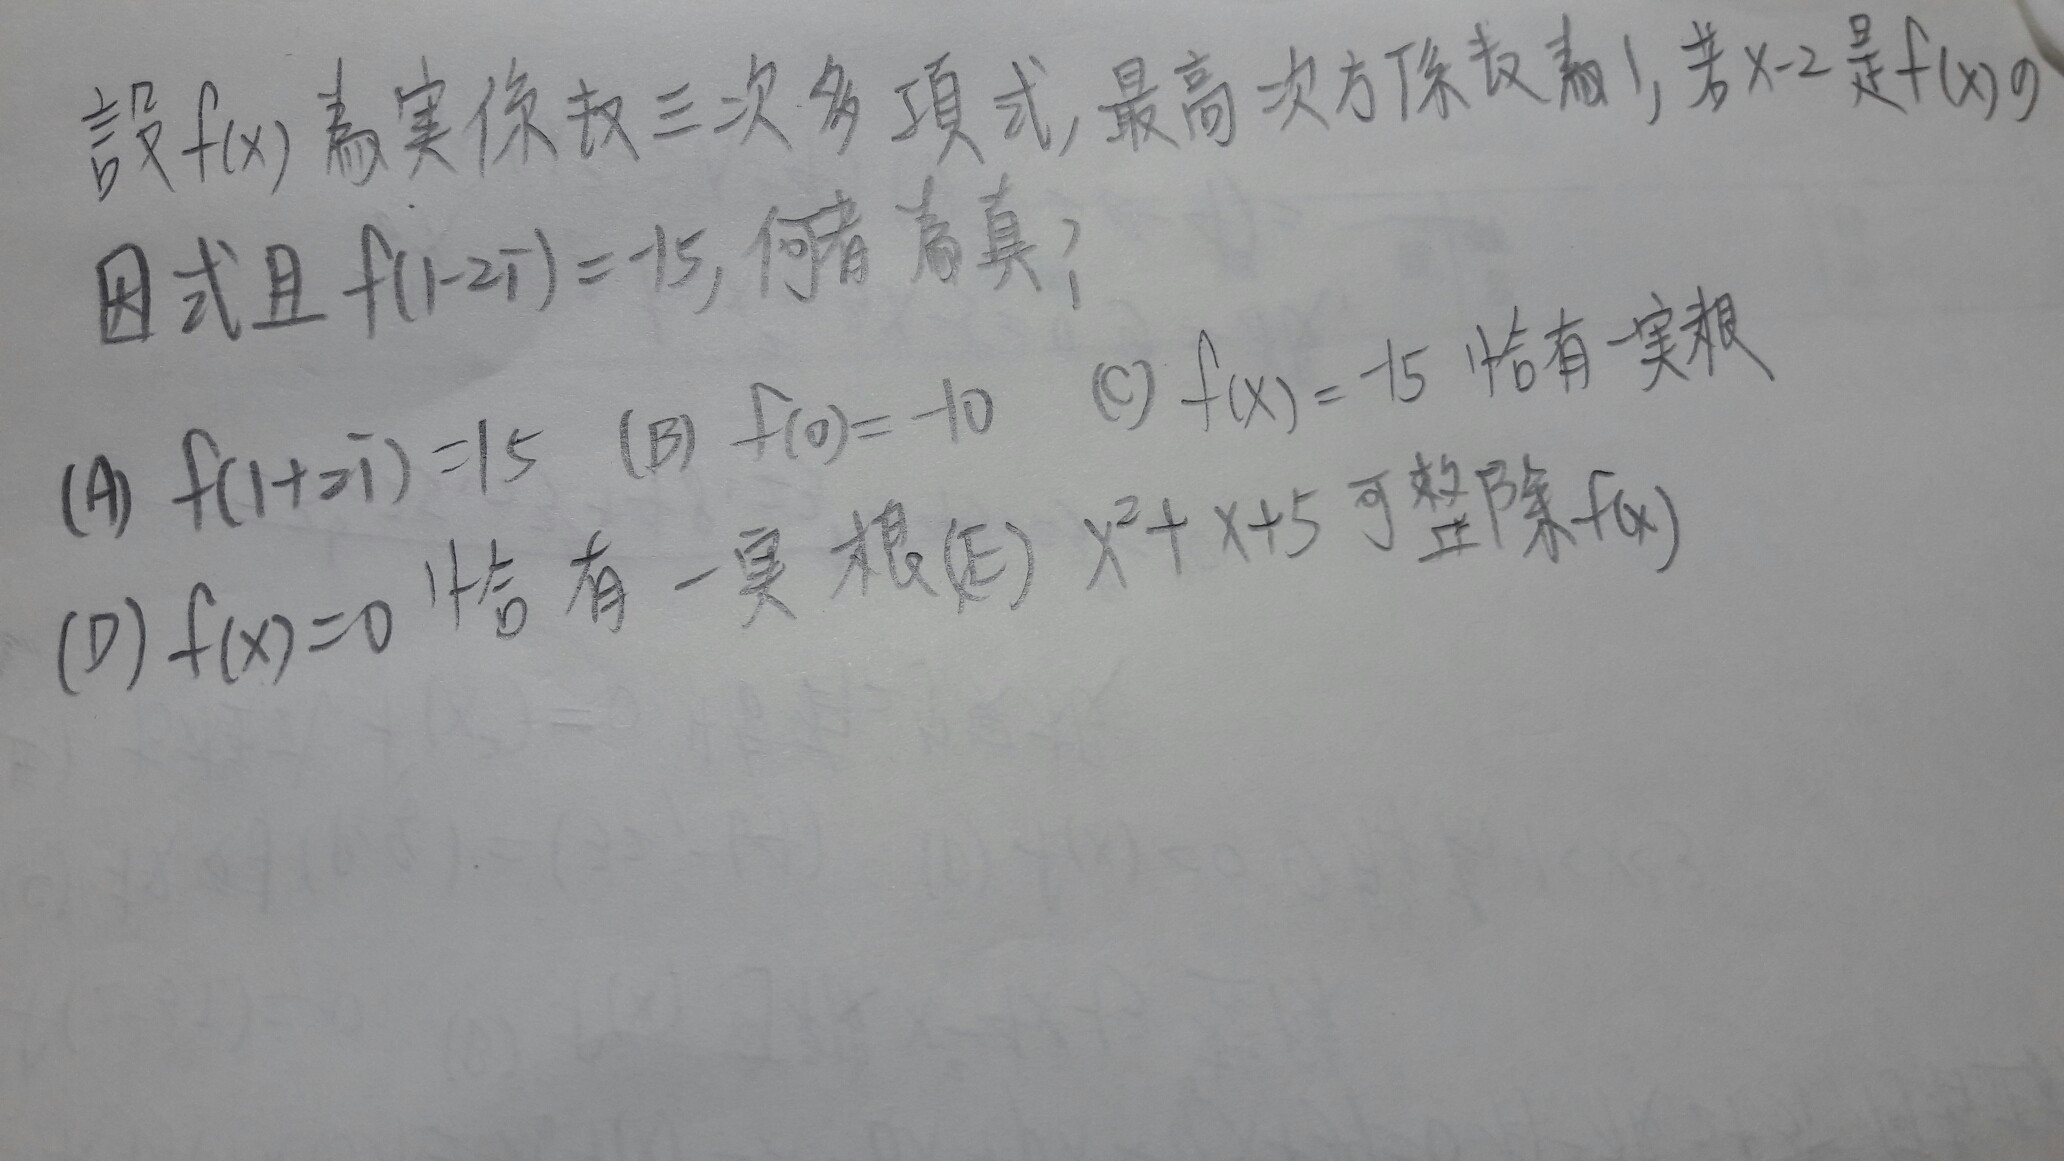 設f(x)為実係数三次多項式,最高次方係数為1,若x-2是f(x)の
因式且f(1-2i)=-15,何者為真?
(A) f(1+2i)=15 (B) f(0)=-10 (C) f(x)=-15恰有一実根
(D) f(x)=0恰有一実根(E) x²+x+5可整除f(x)